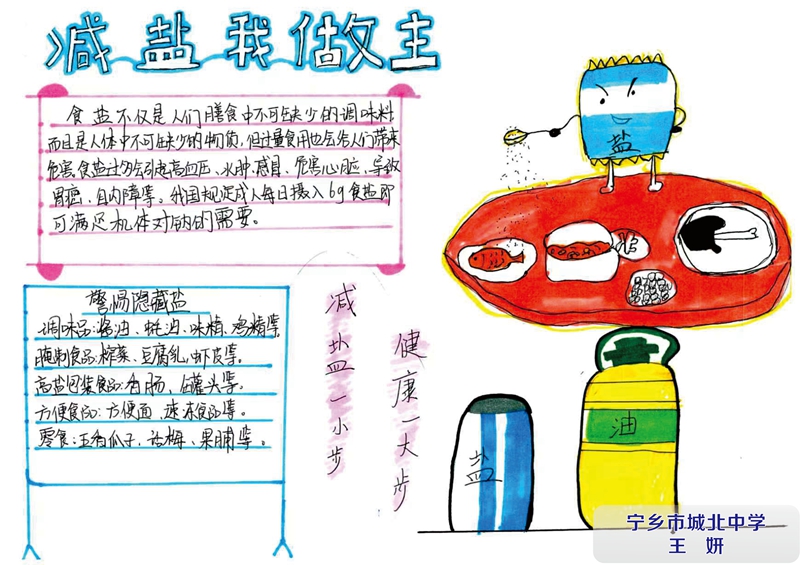 减盐我做主
食盐不仅是人们膳食中不可缺少的调味料
而且是人体中不可缺少的物质,但过量食用也会给人们带来
危害,食盐过多会引起高血压、水肿、感冒、危害心脏、导致
胃癌、白内障等。我国规定成人每日摄入6g食盐即
可满足机体对钠的需要。
警惕隐藏盐
调味品:酱油、蚝油、味精、鸡精等。
腌制食品:榨菜、豆腐乳,虾皮等。
高盐包装食品:香肠、罐头等。
方便食品:方便面、速冻食品等。
零食:五香瓜子、话梅、果脯等。
减盐一小步
健康一大步
盐
盐
油
宁乡市城北中学
王 妍